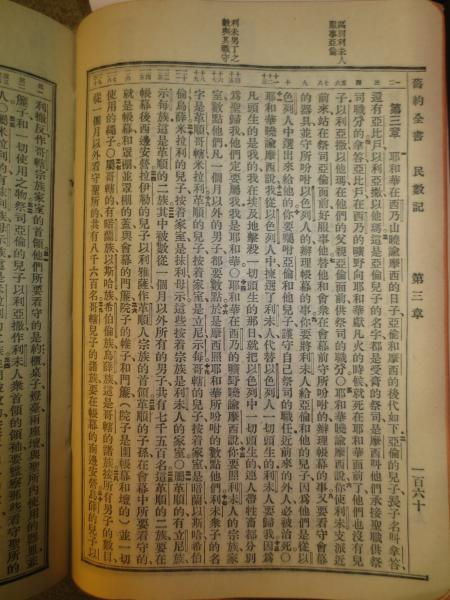 舊約全書 民數記 第三章 一百六十
區別利未人
服事亞倫
利未男丁之
數與其職守
第三章 耶和華在西乃山曉諭摩西的日子亞倫和摩西的後代如下亞倫的兒子長子名叫拿答
還有亞比戶以利亞撒以他瑪這是亞倫兒子的名字都是受膏的祭司是摩西叫他們承接聖職供祭
司職分的拿答亞比戶在西乃的曠野向耶和華獻凡火的時候就死在耶和華面前了他們也沒有兒
子以利亞撒以他瑪在他們的父親亞倫面前供祭司的職分○耶和華曉諭摩西說你使利未支派近
前來站在祭司亞倫面前好服事他替他和會衆在會幕前守所吩咐的辦理帳幕的事又要看守會幕
的器具並守所吩咐以色列人的辦理帳幕的事你要將利未人給亞倫和他的兒子因爲他們是從以
色列人中選出來給他的你要囑咐亞倫和他兒子謹守自己祭司的職任近前來的外人必被治死○
耶和華曉諭摩西說我從以色列人中揀選了利未人代替以色列人一切頭生的利未人要歸我因爲
凡頭生的是我的我在埃及地擊殺一切頭生的那日就把以色列中一切頭生的連人帶牲畜都分別
爲聖歸我他們定要屬我我是耶和華○耶和華在西乃的曠野曉諭摩西說你要照利未人的宗族家
室數點他們凡一個月以外的男子都要數點於是摩西照耶和華所吩咐的數點他們利未衆子的名
字是革順哥轄米拉利革順的兒子按着家室是立尼示每哥轄的兒子按着家室是暗蘭以斯哈希伯
倫烏薛米拉利的兒子按着家室是抹利母示這些按着宗族是利未人的家室○屬革順的有立尼族
示每族這是革順的二族其中被數從一個月以外所有的男子共有七千五百名這革順的二族要在
帳幕後西邊安營拉伊勒的兒子以利雅薩作革順人宗族的首領革順的子孫在會幕中所要看守的
就是帳幕和罩棚並罩棚的蓋與會幕的門簾院子的帷子和門簾（院子是圍帳幕和壇的）並一切
使用的繩子○屬哥轄的有暗蘭族以斯哈族希伯倫族烏薛族這是哥轄的諸族按所有男子的數目
從一個月以外看守聖所的共有八千六百名哥轄兒子的諸族要在帳幕的南邊安營烏薛的兒子以
利撒反作哥轄宗族家室的首領他們所要看守的是約櫃桌子燈臺兩座壇與聖所內使用的器皿並
簾子和一切使用之物祭司亞倫的兒子以利亞撒作利未人衆首領的領袖要監察那些看守聖所的